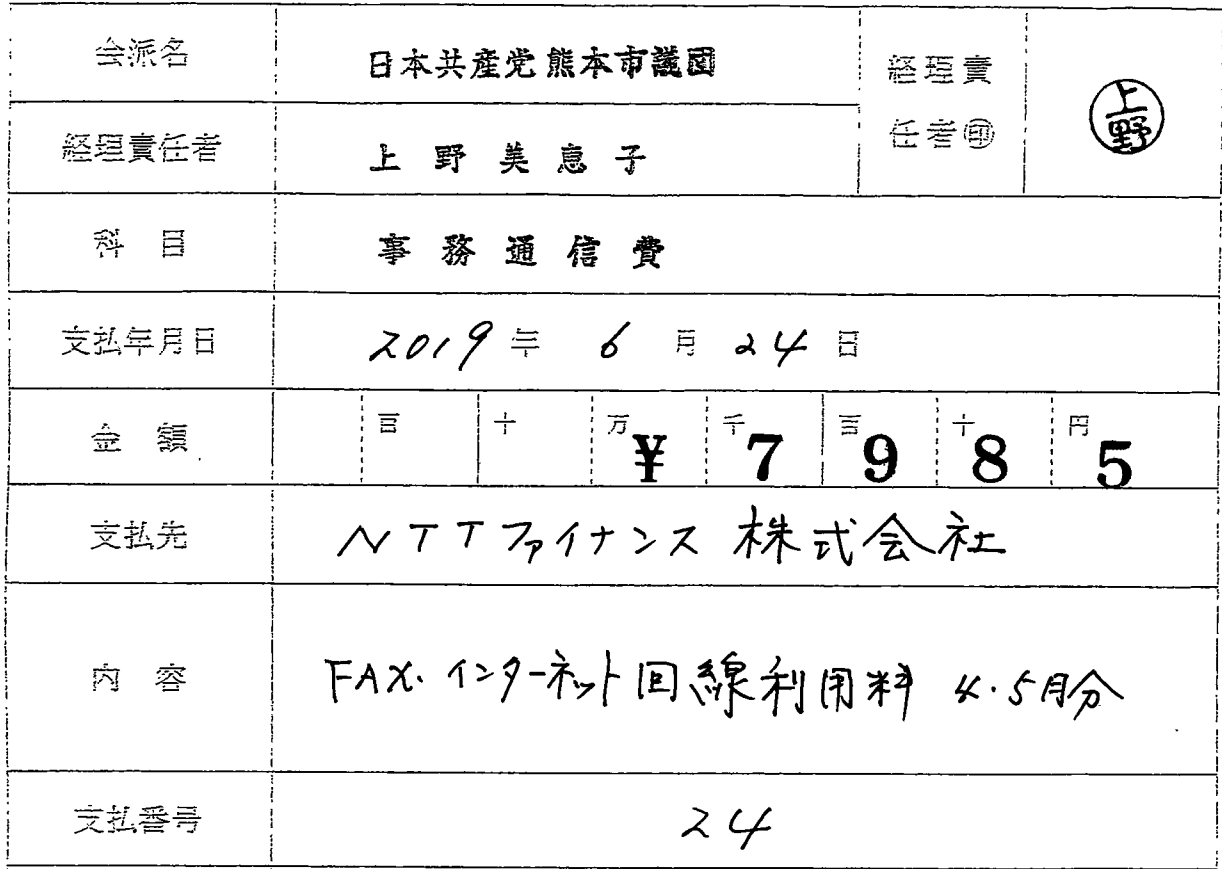 会派名 日本共産党熊本市議団 経理責任者㊞ 上野
経理責任者 上野美恵子
科目 事務通信費
支払年月日 2019年 6月 24日
金額 百 十 万 千 百 十 円 ¥7985
支払先 NTTファイナンス株式会社
内容 FAX・インターネット回線利用料 4・5月分
支払番号 24